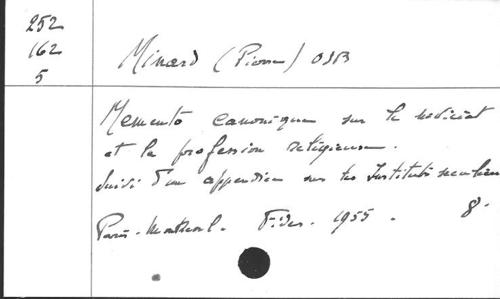 252
162
5
Minard (Pierre) OSB
Memento canonique sur le noviciat
et la profession religieuse.
Suivi d'un appendice sur les Instituts séculiers
Paris-Montreal. Fides. 1955. 8°.